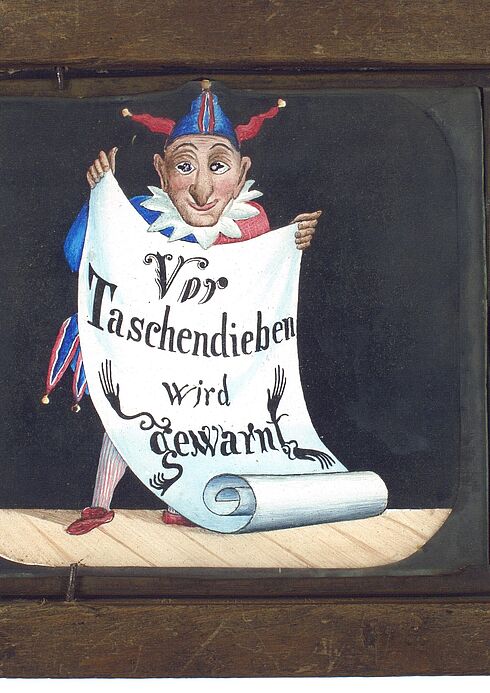 Vor
Taschendieben
wird
gewarnt